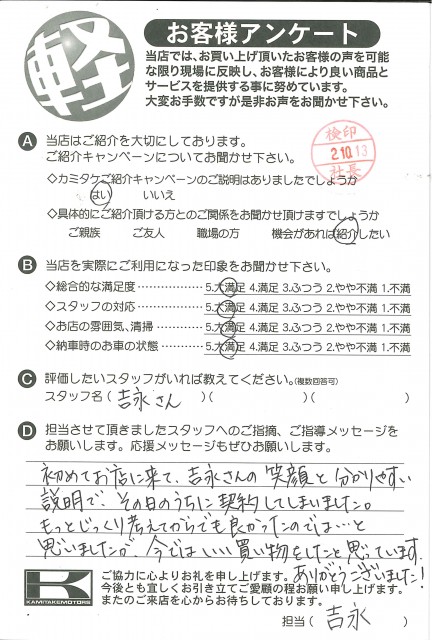 軽
お客様アンケート
当店では、お買い上げ頂いたお客様の声を可能
な限り現場に反映し、お客様により良い商品と
サービスを提供する事に努めています。
大変お手数ですが是非お声をお聞かせ下さい。
検印
2.10.13
社長
A 当店はご紹介を大切にしております。
ご紹介キャンペーンについてお聞かせ下さい。
◇カミタケご紹介キャンペーンのご説明はありましたでしょうか
はい いいえ
◇具体的にご紹介頂ける方とのご関係をお聞かせ頂けますでしょうか
ご親族 ご友人 職場の方 機会があれば紹介したい
B 当店を実際にご利用になった印象をお聞かせ下さい。
◇総合的な満足度 5.大満足 4.満足 3.ふつう 2.やや不満 1.不満
◇スタッフの対応 5.大満足 4.満足 3.ふつう 2.やや不満 1.不満
◇お店の雰囲気、清掃 5.大満足 4.満足 3.ふつう 2.やや不満 1.不満
◇納車時のお車の状態 5.大満足 4.満足 3.ふつう 2.やや不満 1.不満
C 評価したいスタッフがいれば教えてください。(複数回答可)
スタッフ名( 吉永さん )( )( )
D 担当させて頂きましたスタッフへのご指摘、ご指導メッセージを
お願いします。応援メッセージもぜひお願いします。
初めてお店に来て、吉永さんの笑顔と分かりやすい
説明で、その日のうちに契約してしまいました。
もっとじっくり考えてからでも良かったのでは…と
思いましたが、今ではいい買い物をしたと思っています。
ありがとうございました!
K
KAMITAKEMOTORS
ご協力に心よりお礼を申し上げます。
今後とも宜しくお引き立てご愛顧の程お願い申し上げます。
またのご来店を心からお待ちしております。
担当( 吉永 )